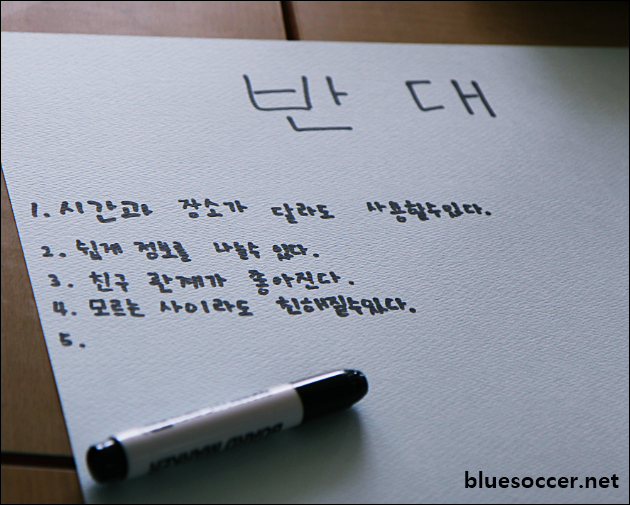 반대
1. 시간과 장소가 달라도 사용할수있다.
2. 쉽게 정보를 나눌수 있다.
3. 친구 관계가 좋아진다.
4. 모르는 사이라도 친해질수있다.
5.
bluesoccer.net